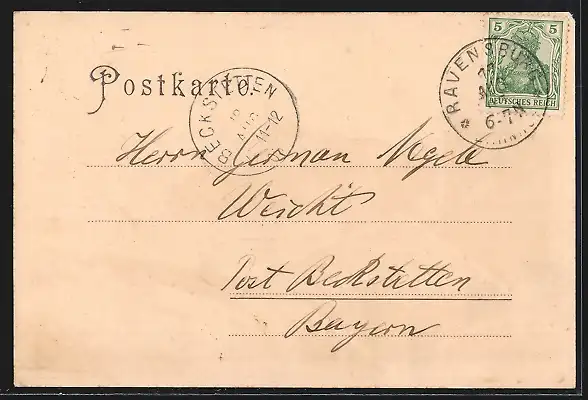 Postkarte.
5 5
DEUTSCHES REICH
RAVENSBURG
6-7N
BECKSTETTEN
AUG
11-12
Herrn German Negele
Weicht
Post Beckstetten
Bayern